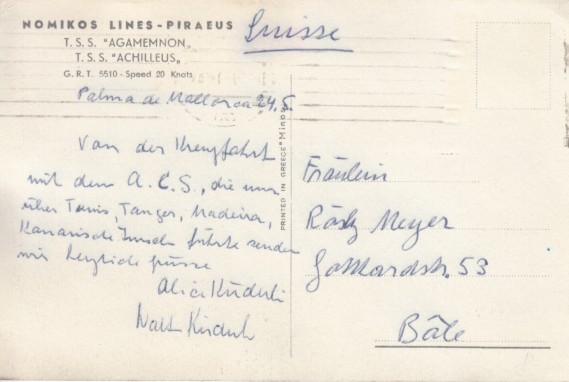 NOMIKOS LINES - PIRAEUS
T. S. S. "AGAMEMNON„
T. S. S. "ACHILLEUS„
G. R. T. 5510 - Speed 20 Knots
Suisse
Palma de Mallorca 24.5.
Von der Kreuzfahrt
mit dem A.C.S., die uns
über Tunis, Tanger, Madeira,
Kanarische Inseln führte senden
wir herzliche Grüsse
Alice
Walter
PRINTED IN GREECE
Fräulein
Rösly Meyer
Gotthardstr. 53
Bâle